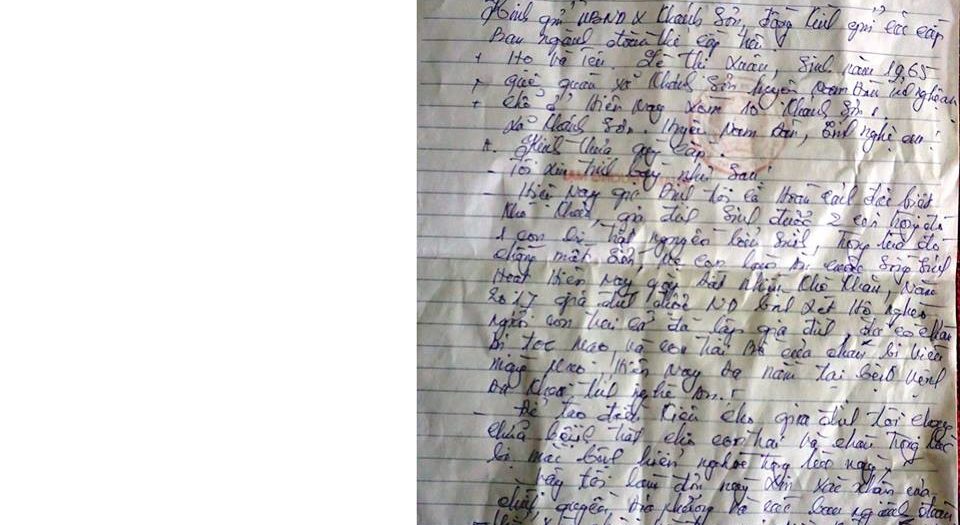 Kính gửi UBND X Khánh Sơn, Đồng Kính gửi các cấp
Ban ngành đoàn thể cấp trên
+ Họ và tên: Lê Thị Xuân, Sinh năm 1965
+ Quê quán xã Khánh Sơn huyện Nam Đàn tỉnh nghệ an
+ chỗ ở Hiện Nay xóm 10 Khánh Sơn.
xã Khánh Sơn. Huyện Nam Đàn, tỉnh nghệ an!
Kính thưa quý cấp.
- Tôi xin trình bày như Sau:
- Hiện Nay gia Đình tôi có Hoàn cảnh đặc biệt
Khó Khăn, gia đình Sinh được 2 con trong đó
1 con bị tật nguyền bẩm Sinh, trong lúc đó
chồng mất Sớm, mẹ con cuộc Sống Sinh
Hoạt Hiện Nay gặp rất nhiều Khó Khăn, Năm
2017 gia đình được ND bình xét Hộ nghèo.
người con trai cả đã lập gia đình,
bị tóc não, và con trai bố của cháu bị viêm
màng Não, Hiện Nay đa nằm tại bệnh viện
Đa Khoa, tỉnh nghệ An.
- Để tạo điều Kiện cho gia đình tôi chạy
chữa bệnh tật cho con trai và cháu trong lúc
bị mắc bệnh hiểm nghèo trong lúc này,
Vậy tôi làm đơn này xin xác nhận của
chính quyền, địa phương và các ban ngành đoàn